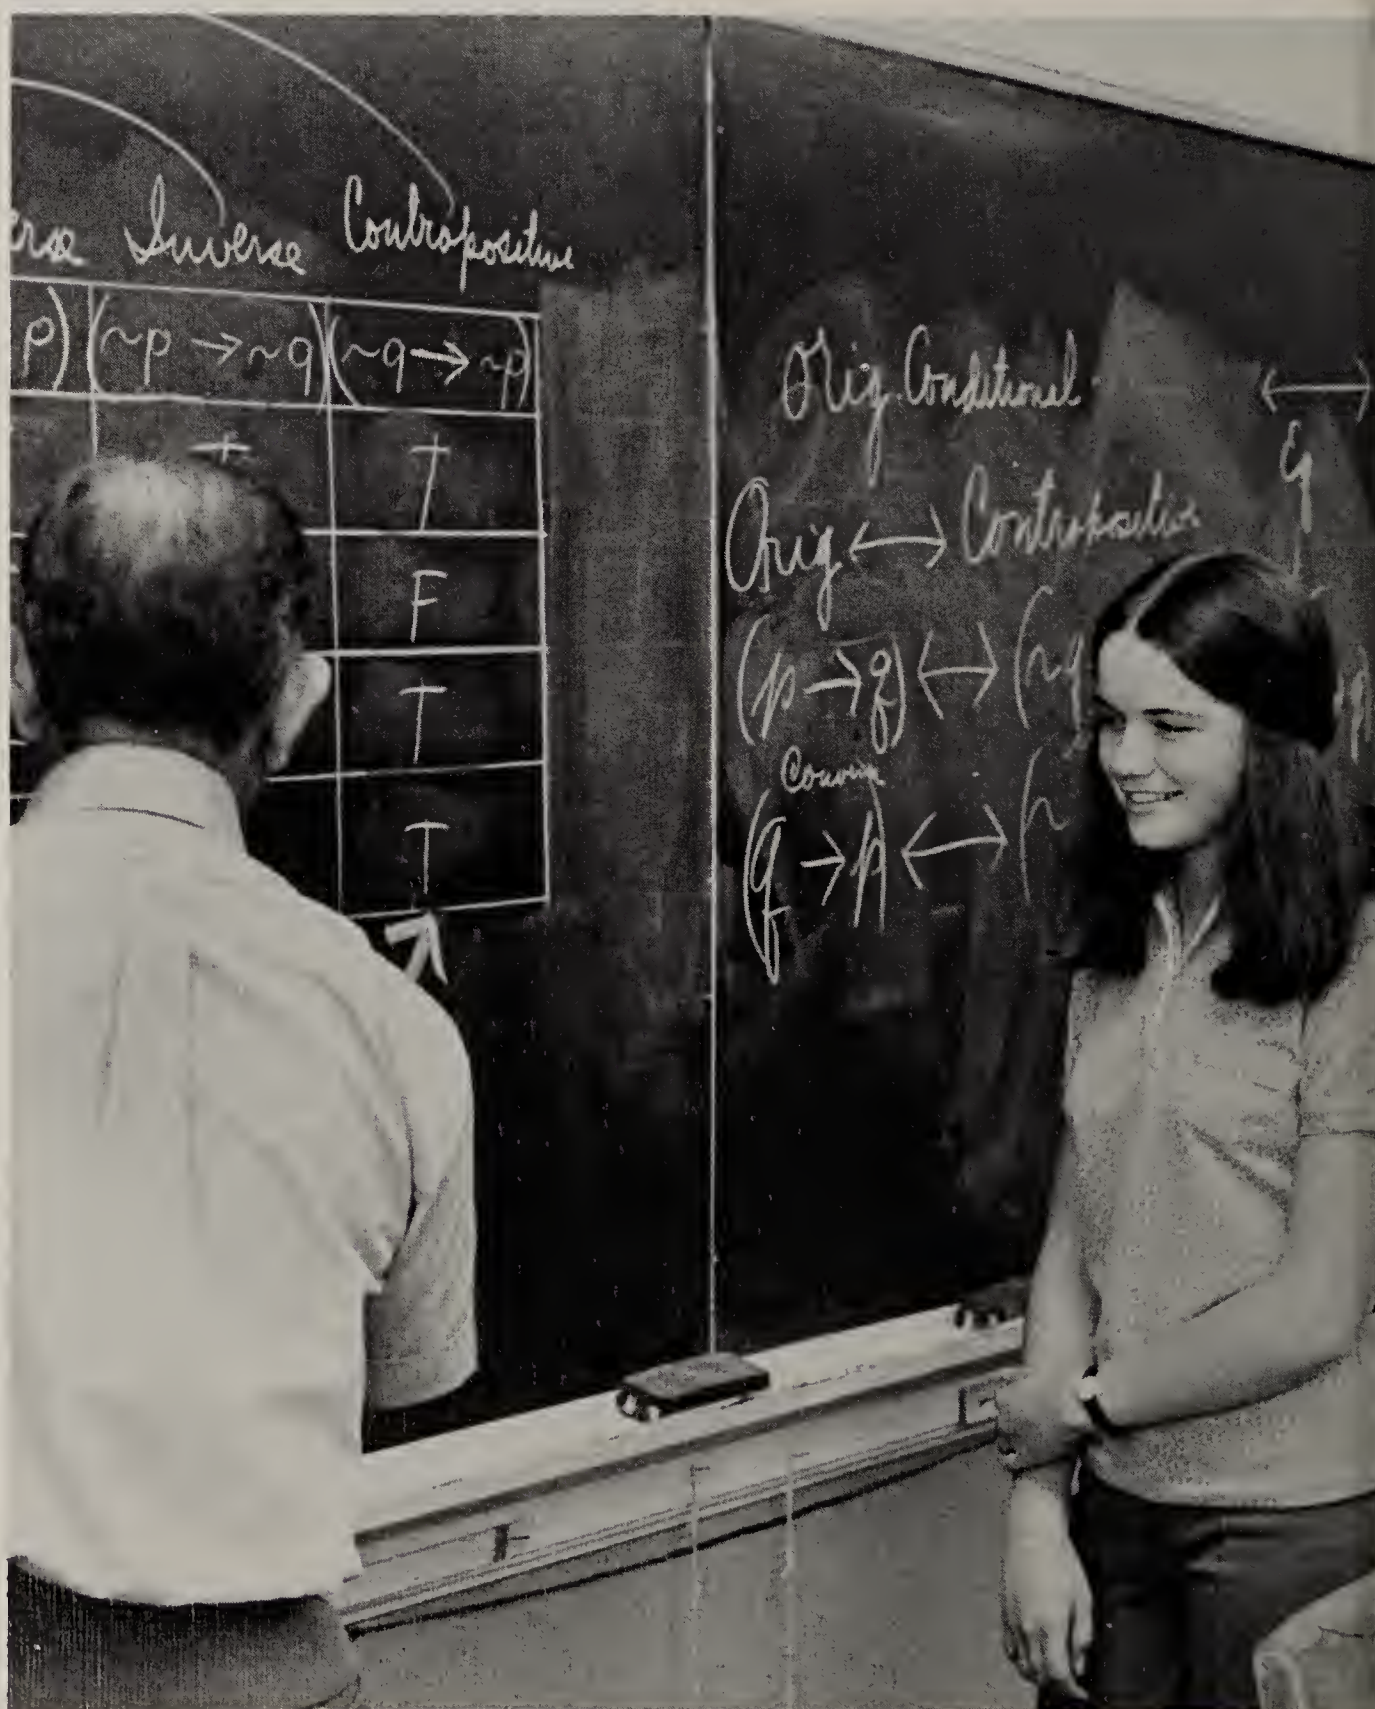 Inverse Contrapositive
p) (~p → ~q) (~q → ~p)
T T
F
T
T
Orig. Conditional ↔
Orig ↔ Contrapositive
(p → q) ↔ (~q
Converse
(q → p) ↔ (~